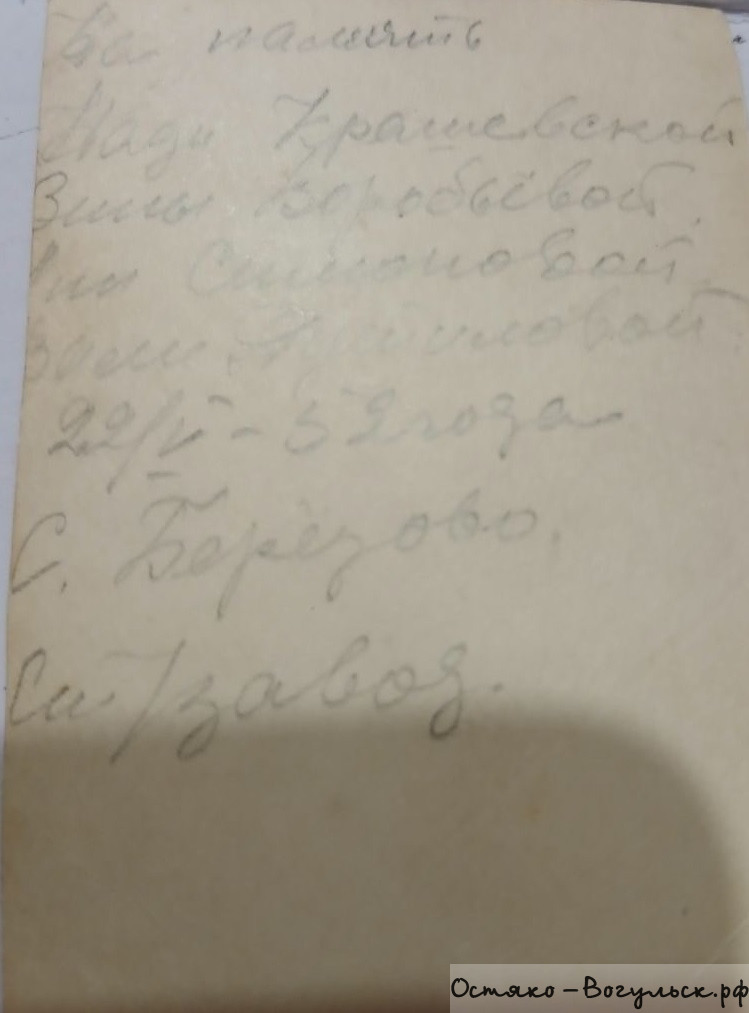 На память
Нади Крашевской
Зины Воробьёвой.
Симоновой.
22/V - 52 года
С. Берёзово.
Сп./завод.
Остяко-Вогульск.рф